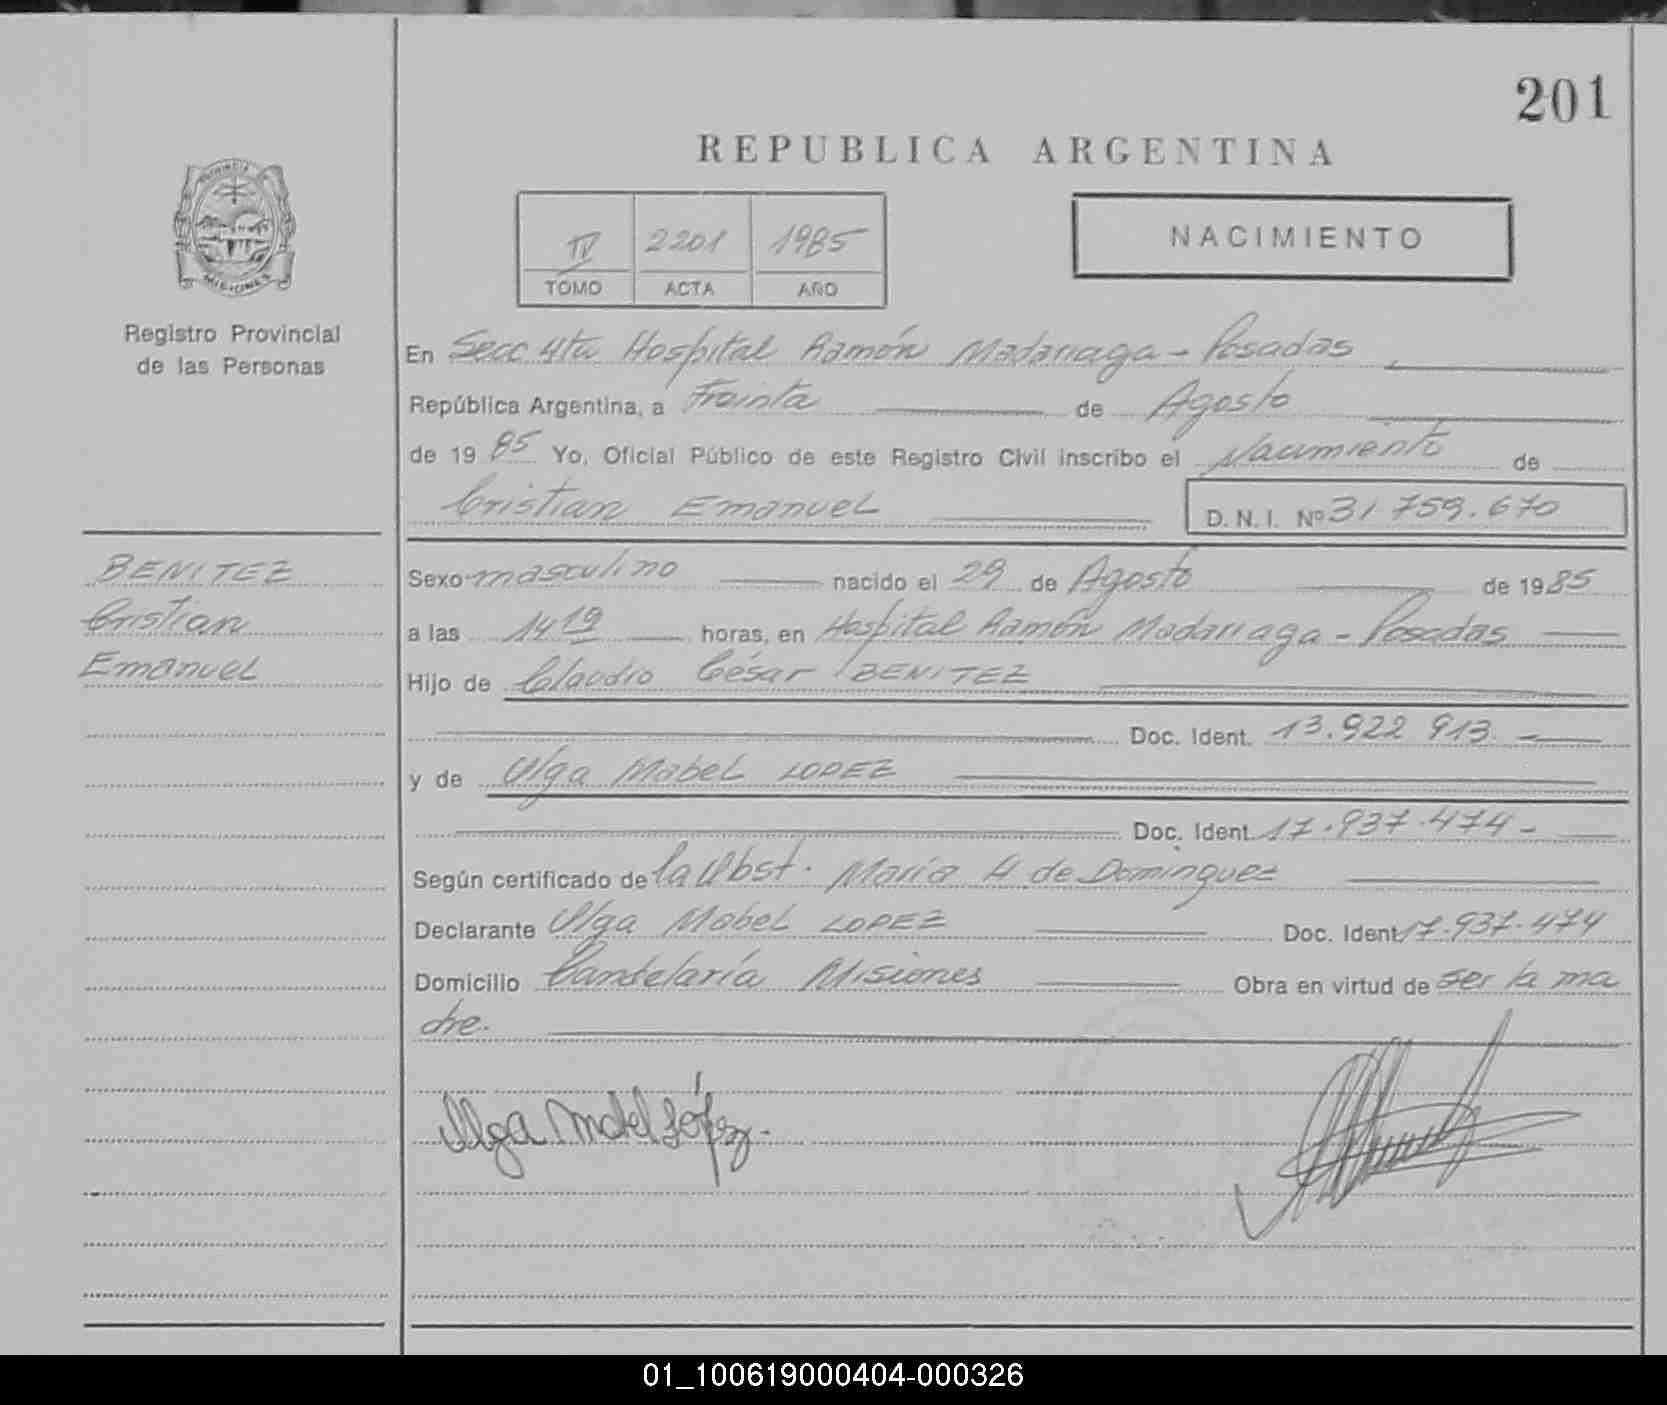 201
REPUBLICA ARGENTINA
PROVINCIA
MISIONES
Registro Provincial
de las Personas
IV 2201 1985
TOMO ACTA AÑO
NACIMIENTO
En Secc 4ta Hospital Ramón Madariaga - Posadas
República Argentina, a Treinta de Agosto
de 1985 Yo, Oficial Público de este Registro Civil inscribo el Nacimiento de
Cristian Emanuel
D. N. I. Nº 31 759.670
BENITEZ
Cristian
Emanuel
Sexo masculino nacido el 29 de Agosto de 1985
a las 14 19 horas, en Hospital Ramón Madariaga - Posadas
Hijo de Claudio César BENITEZ
Doc. Ident. 13.922 913
y de Olga Mabel LOPEZ
Doc. Ident. 17.937.474 -
Según certificado de la Obst. María H de Dominguez
Declarante Olga Mabel LOPEZ Doc. Ident 17.937.474
Domicilio Candelaría Misiones Obra en virtud de ser la ma
dre.
Olga Mabel López.
01_100619000404-000326